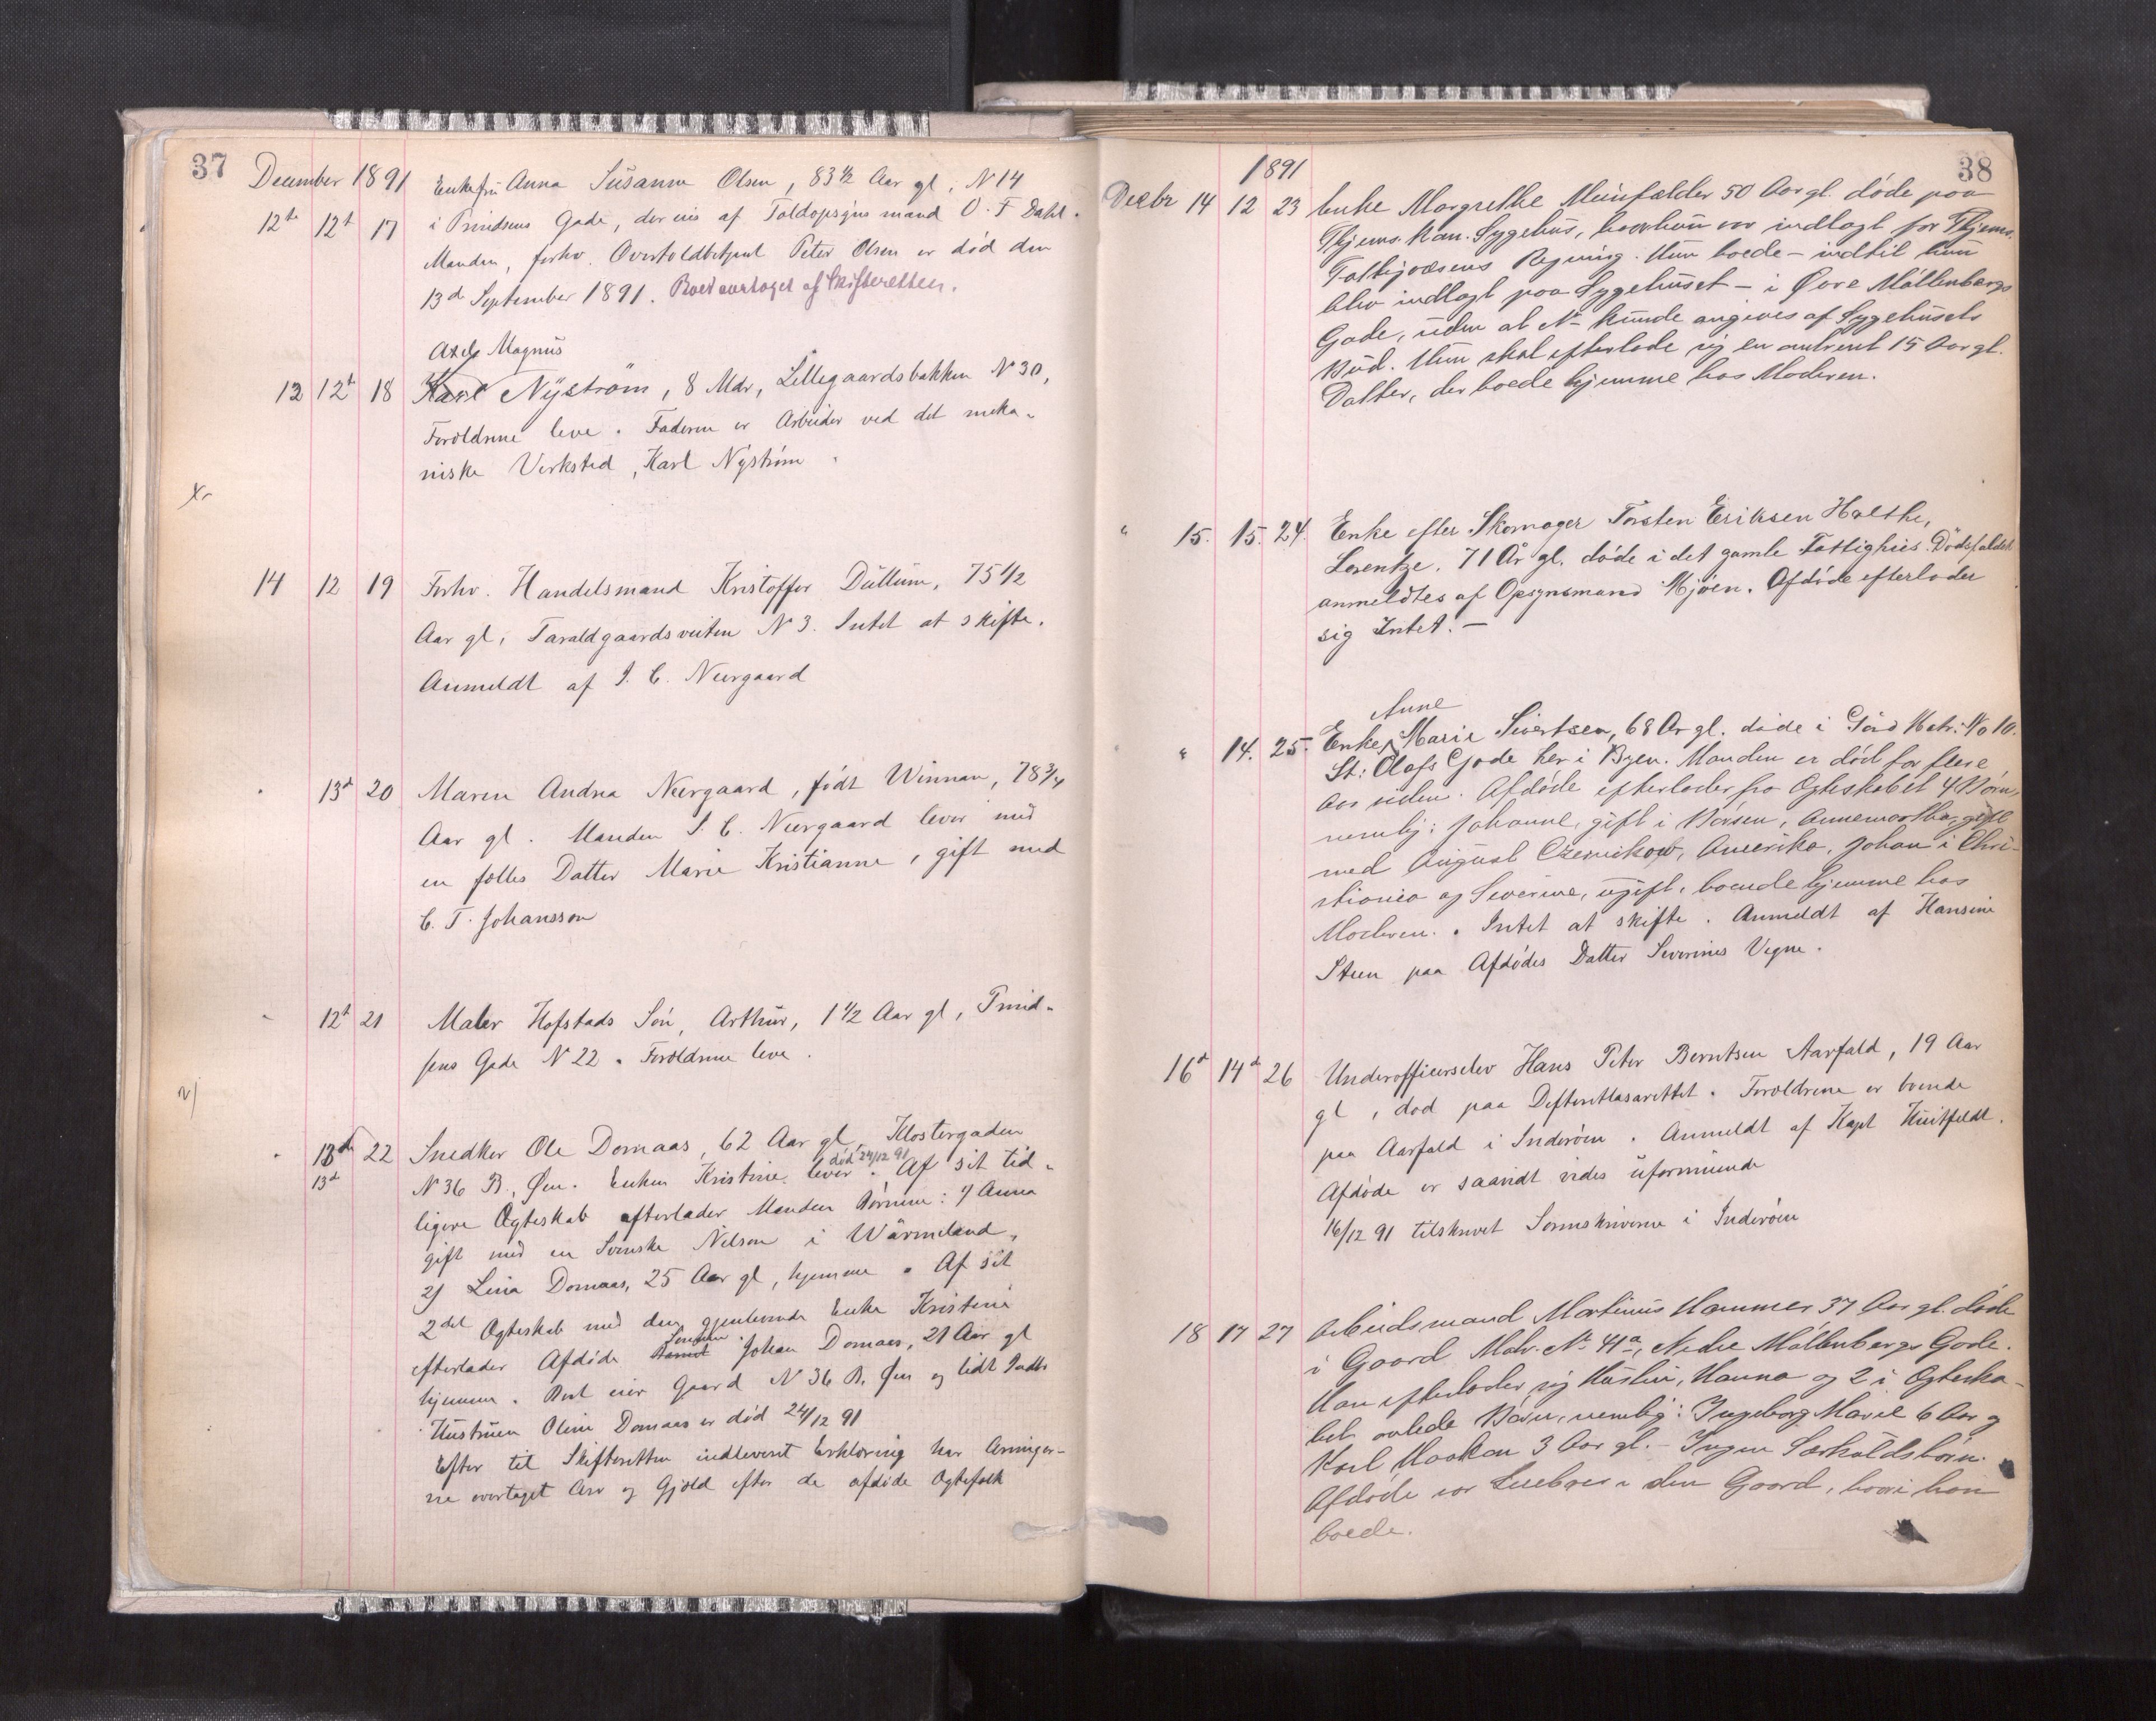 37
December 1891 Enkefru Anna Susanna Olsen, 83½ Aar gl, N 14
12te 12t 17 i Prindsens Gade, der eies af Toldopsynsmand O. F. Dahl.
Manden, forhv. Overtoldbetjent Peter Olsen er død den
13d September 1891. Boet overtaget af Skifteretten.
Axel Magnus
12 12t 18 Karl Nÿström, 8 Mdr, Lillegaardsbakken N 30,
Forældrene leve. Faderen er Arbeider ved det meka-
niske Verksted, Karl Nyström.
14 12 19 Forhv. Handelsmand Kristoffer Dullum, 75 1/2
Aar gl, Taraldgaardsveiten N 3. Intet at skifte.
Anmeldt af I. C. Neergaard
13d 20 Maren Andrea Neergaard, født Winnan, 78 3/4
Aar gl. Manden I. C. Neergaard lever med
en fælles Datter Marie Kristianne, gift med
C. T. Johansson
12t 21 Maler Hofstads Søn, Arthur, 1 1/2 Aar gl, Prind-
sens Gade N 22. Forældrene leve.
13d 22 Snedker Ole Domaas, 62 Aar gl, Klostergaden
13d N 36 B, Øen. Enken Kristine lever død 24/12 91. Af sit tid-
ligere Ægteskab efterlader Manden Børnene: 1) Anna
gift med en Svenske Nilson i Wärmeland,
2) Lina Domaas, 25 Aar gl, hjemme. Af sit
2det Ægteskab med den gjenlevende Enke Kristine
efterlader Afdøde Barnet Sønnen Johan Domaas, 21 Aar gl
hjemme. Boet eier Gaard N 36 B. Øen og lidt Indbo
Hustruen Oline Domaas er død 24/12 91
Efter til Skifteretten indleveret Erklæring har Arvinger-
ne overtaget Arv og Gjæld efter de afdøde Ægtefolk
38
1891
Decbr 14 12 23 Enke Margrethe 50 Aar gl. døde paa
Thjems. Kom. Sygehus, hvor hun var indlagt for Thjems.
Fattigvæsens Regning. Hun boede – indtil hun
blev indlagt paa Sygehuset – i Øvre Møllenbergs
Gade, uden at No kunde angives af Sygehusets
Bud. Hun skal efterlade sig en omtrent 15 Aar gl.
Datter, der boede hjemme hos Moderen.
" 15. 15. 24. Enke efter Skomager Torsten Eriksen Holthe,
Lorentze, 71 År gl. døde i det gamle Fattighus. Dødsfaldet
anmeldtes af Opsynsmand Mjøen. Afdøde efterlader
sig Intet. –
Anne
" 14. 25. Enke Marie Sivertsen, 68 Ar gl. døde i Gård Matr. No 10.
St: Olafs Gade her i Byen. Manden er død for flere
Aar siden. Afdøde efterlader fra Ægteskabet 4 Børn,
nemlig: Johanne, gift i Børsen, Annemartha, gift
med August Czernikow, Amerika, Johan i Chri-
stiania og Severine, ugift, boende hjemme hos
Moderen. Intet at skifte. Anmeldt af Hansine
Steen paa Afdødes Datter Severines Vegne.
16d 14d 26 Underofficerselev Hans Peter Berntsen Aarfald, 19 Aar
gl, død paa Difteritlasarettet. Forældrene er boende
paa Aarfald i Inderøen. Anmeldt af Kapt Huitfeldt.
Afdøde er saavidt vides uformuende
16/12 91 tilskrevet Sorenskriveren i Inderøen
18 17 27 Arbeidsmand Martinus Hammer 37 Aar gl. døde
i Gaard Matr. No 41a, Nedre Møllenbergs Gade.
Han efterlader sig Hustru, Hanna og 2 i Ægteska-
bet avlede Børn, nemlig: Ingeborg Marie 6 Aar og
Karl Haakon 3 Aar gl. – Ingen Særkuldsbørn.
Afdøde var Leieboer i den Gaard, hvori han
boede.